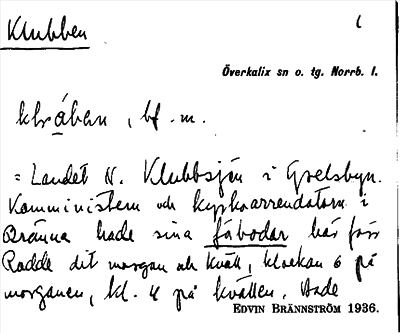 Klubben 1
Överkalix sn o. tg. Norrb. l.
klỏban, bf. m.
= Landet N. Klubbsjön i Grelsbyn.
Komministern och kyrkoarrendatorn i
Bränna hade sina fäbodar här förr
Rodde dit morgon och kväll, klockan 6 på
morgonen, kl. 4 på kvällen. Hade
EDVIN BRÄNNSTRÖM 1936.